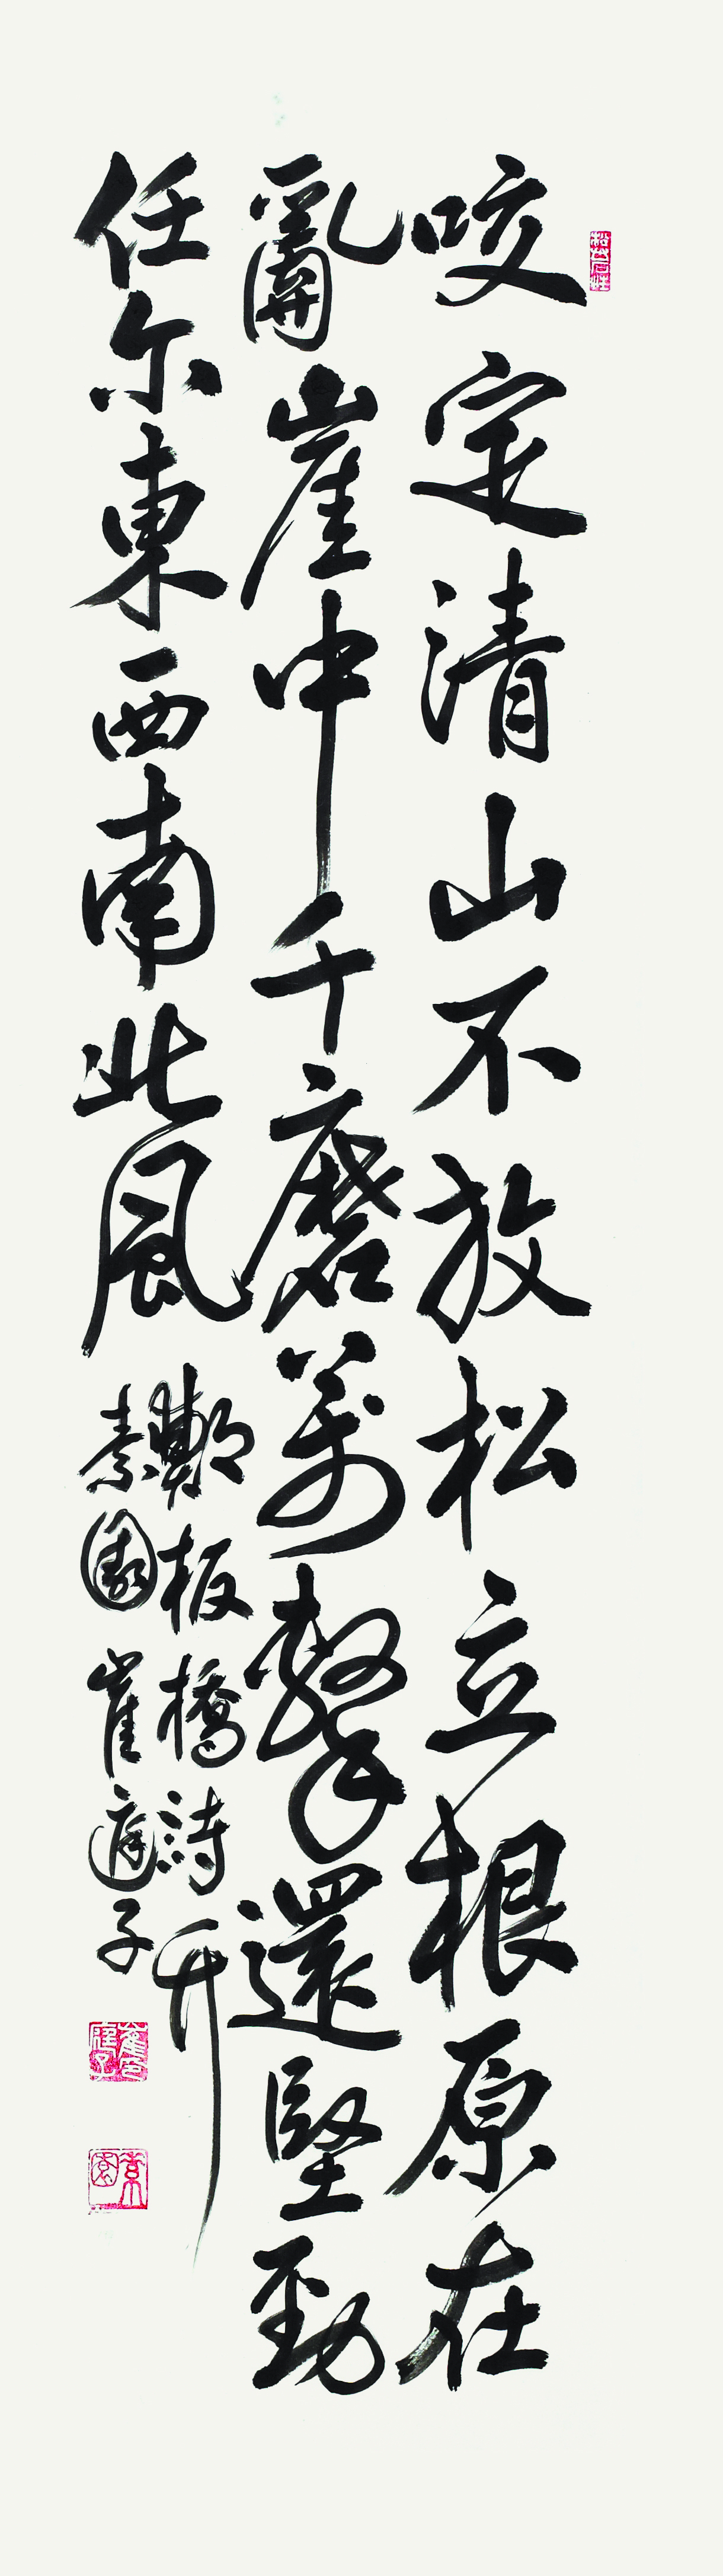 咬定清山不放松立根原在
亂崖中千磨萬擊還堅勁
任尔東西南北風
鄭板橋詩竹
素園崔子
素園